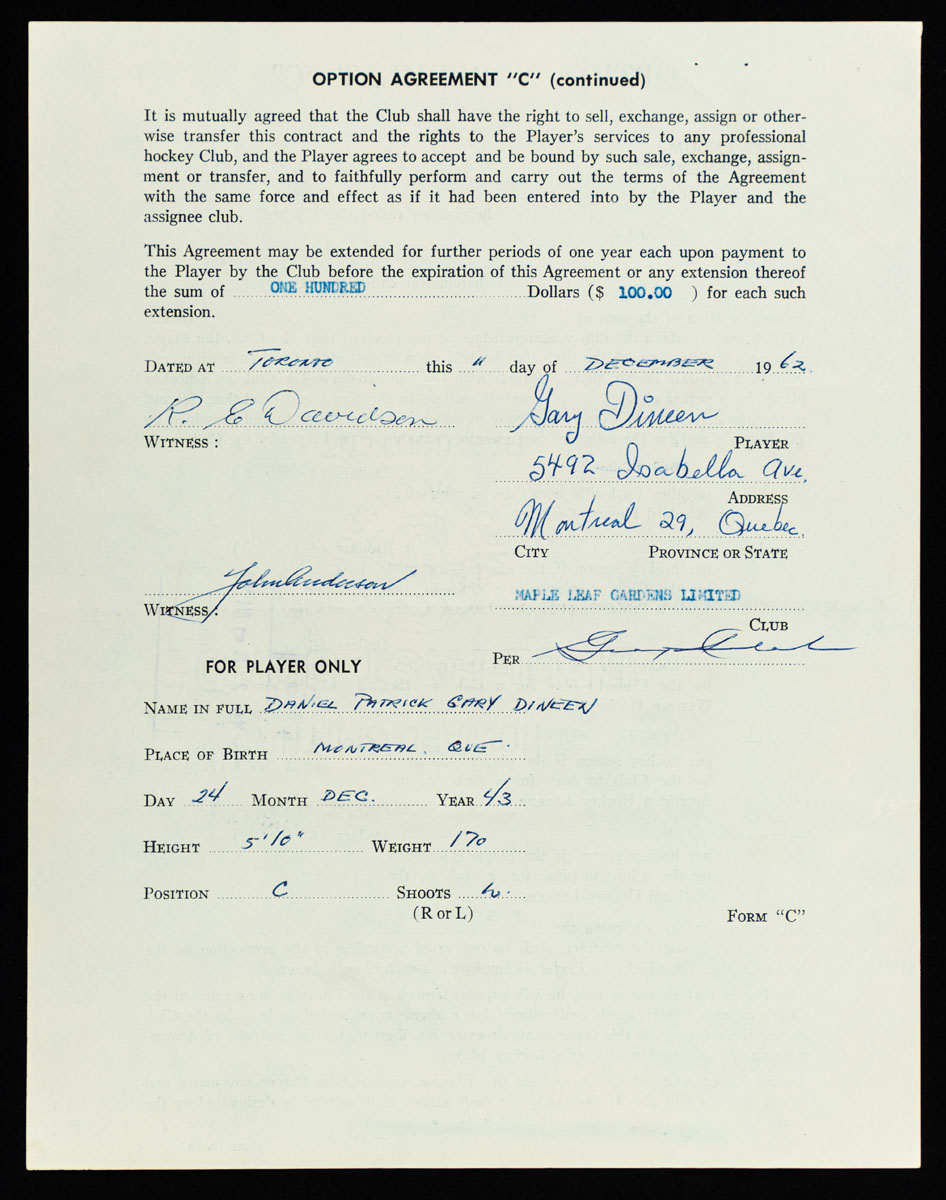 OPTION AGREEMENT "C" (continued)
It is mutually agreed that the Club shall have the right to sell, exchange, assign or other-
wise transfer this contract and the rights to the Player's services to any professional
hockey Club, and the Player agrees to accept and be bound by such sale, exchange, assign-
ment or transfer, and to faithfully perform and carry out the terms of the Agreement
with the same force and effect as if it had been entered into by the Player and the
assignee club.
This Agreement may be extended for further periods of one year each upon payment to
the Player by the Club before the expiration of this Agreement or any extension thereof
the sum of ONE HUNDRED Dollars ($ 100.00 ) for each such
extension.
DATED AT TORONTO this 11 day of DECEMBER 1962.
R. E Davidson Gary Dineen
WITNESS : PLAYER
5492 Isabella Ave.
ADDRESS
Montreal 29, Quebec.
CITY PROVINCE OR STATE
John Anderson
MAPLE LEAF GARDENS LIMITED
WITNESS: CLUB
PER
FOR PLAYER ONLY
NAME IN FULL DANIEL PATRICK GARY DINEEN
PLACE OF BIRTH MONTREAL. QUE.
DAY 24 MONTH DEC. YEAR 43
HEIGHT 5'10" WEIGHT 170
POSITION C SHOOTS L.
(R or L) FORM "C"